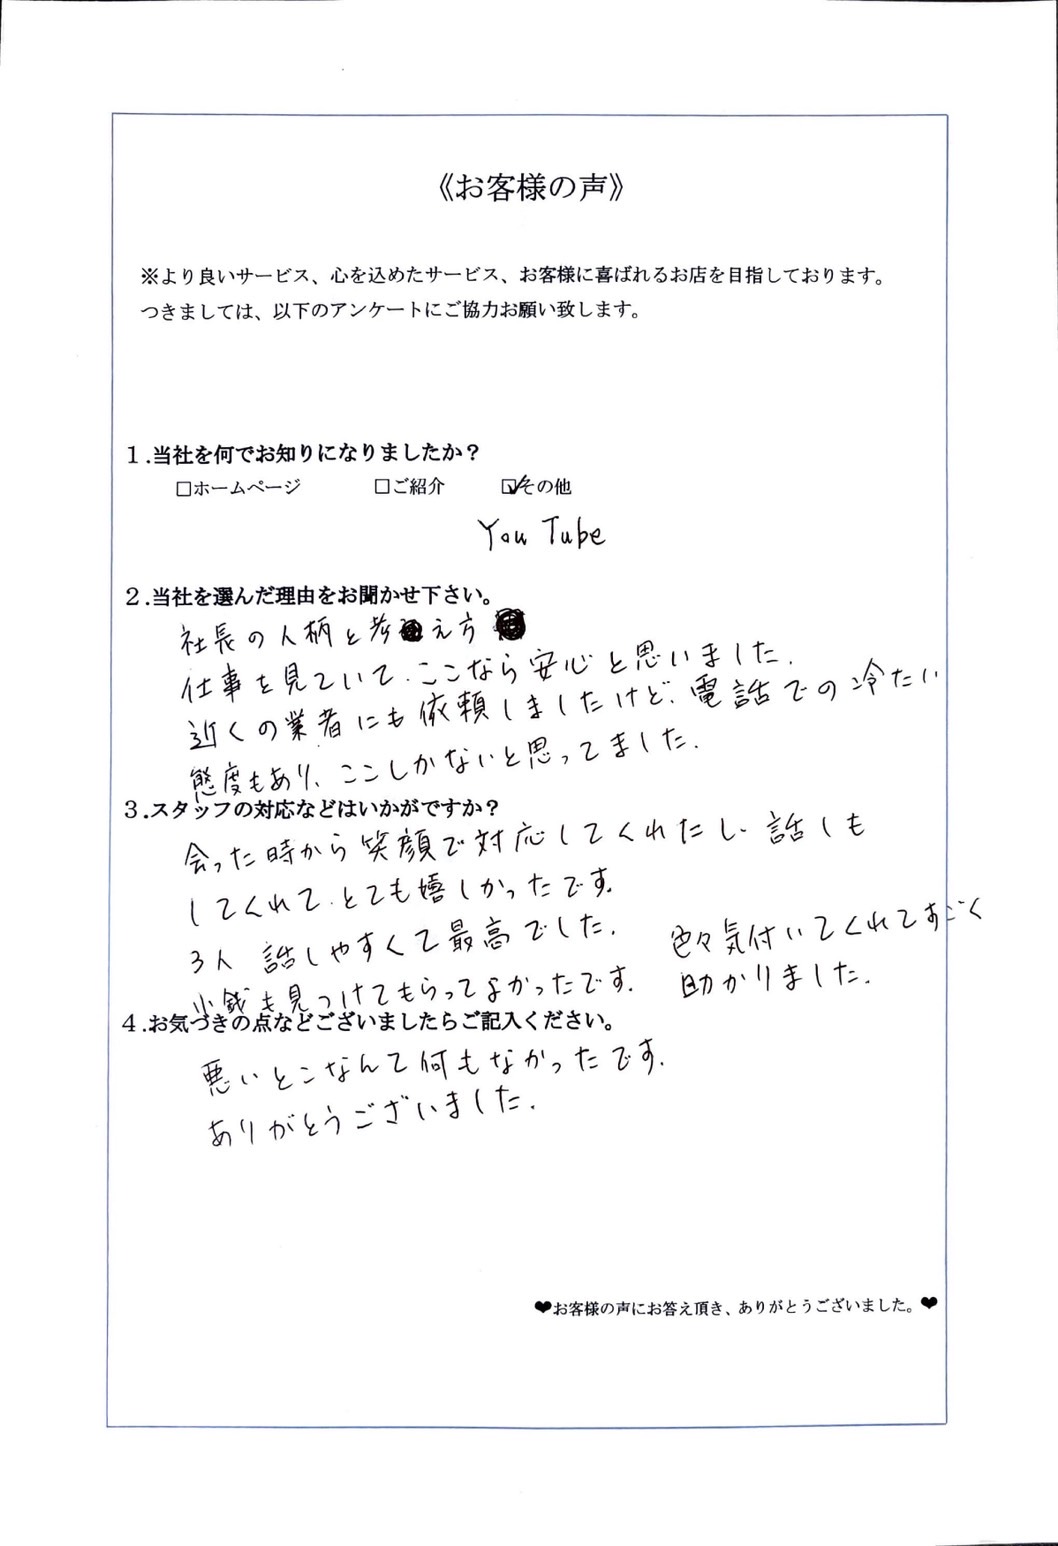 《お客様の声》
※より良いサービス、心を込めたサービス、お客様に喜ばれるお店を目指しております。
つきましては、以下のアンケートにご協力お願い致します。
1.当社を何でお知りになりましたか？
□ホームページ □ご紹介 ☑その他
You Tube
2.当社を選んだ理由をお聞かせ下さい。
社長の人柄と考え方
仕事を見ていて、ここなら安心と思いました.
近くの業者にも依頼しましたけど、電話での冷たい
態度もあり、ここしかないと思ってました.
3.スタッフの対応などはいかがですか？
会った時から笑顔で対応してくれたし、話しも
してくれて、とても嬉しかったです.
3人 話しやすくて最高でした.
小銭も見つけてもらってよかったです.
色々気付いてくれてすごく
助かりました.
4.お気づきの点などございましたらご記入ください。
悪いとこなんて何もなかったです.
ありがとうございました.
❤お客様の声にお答え頂き、ありがとうございました。❤